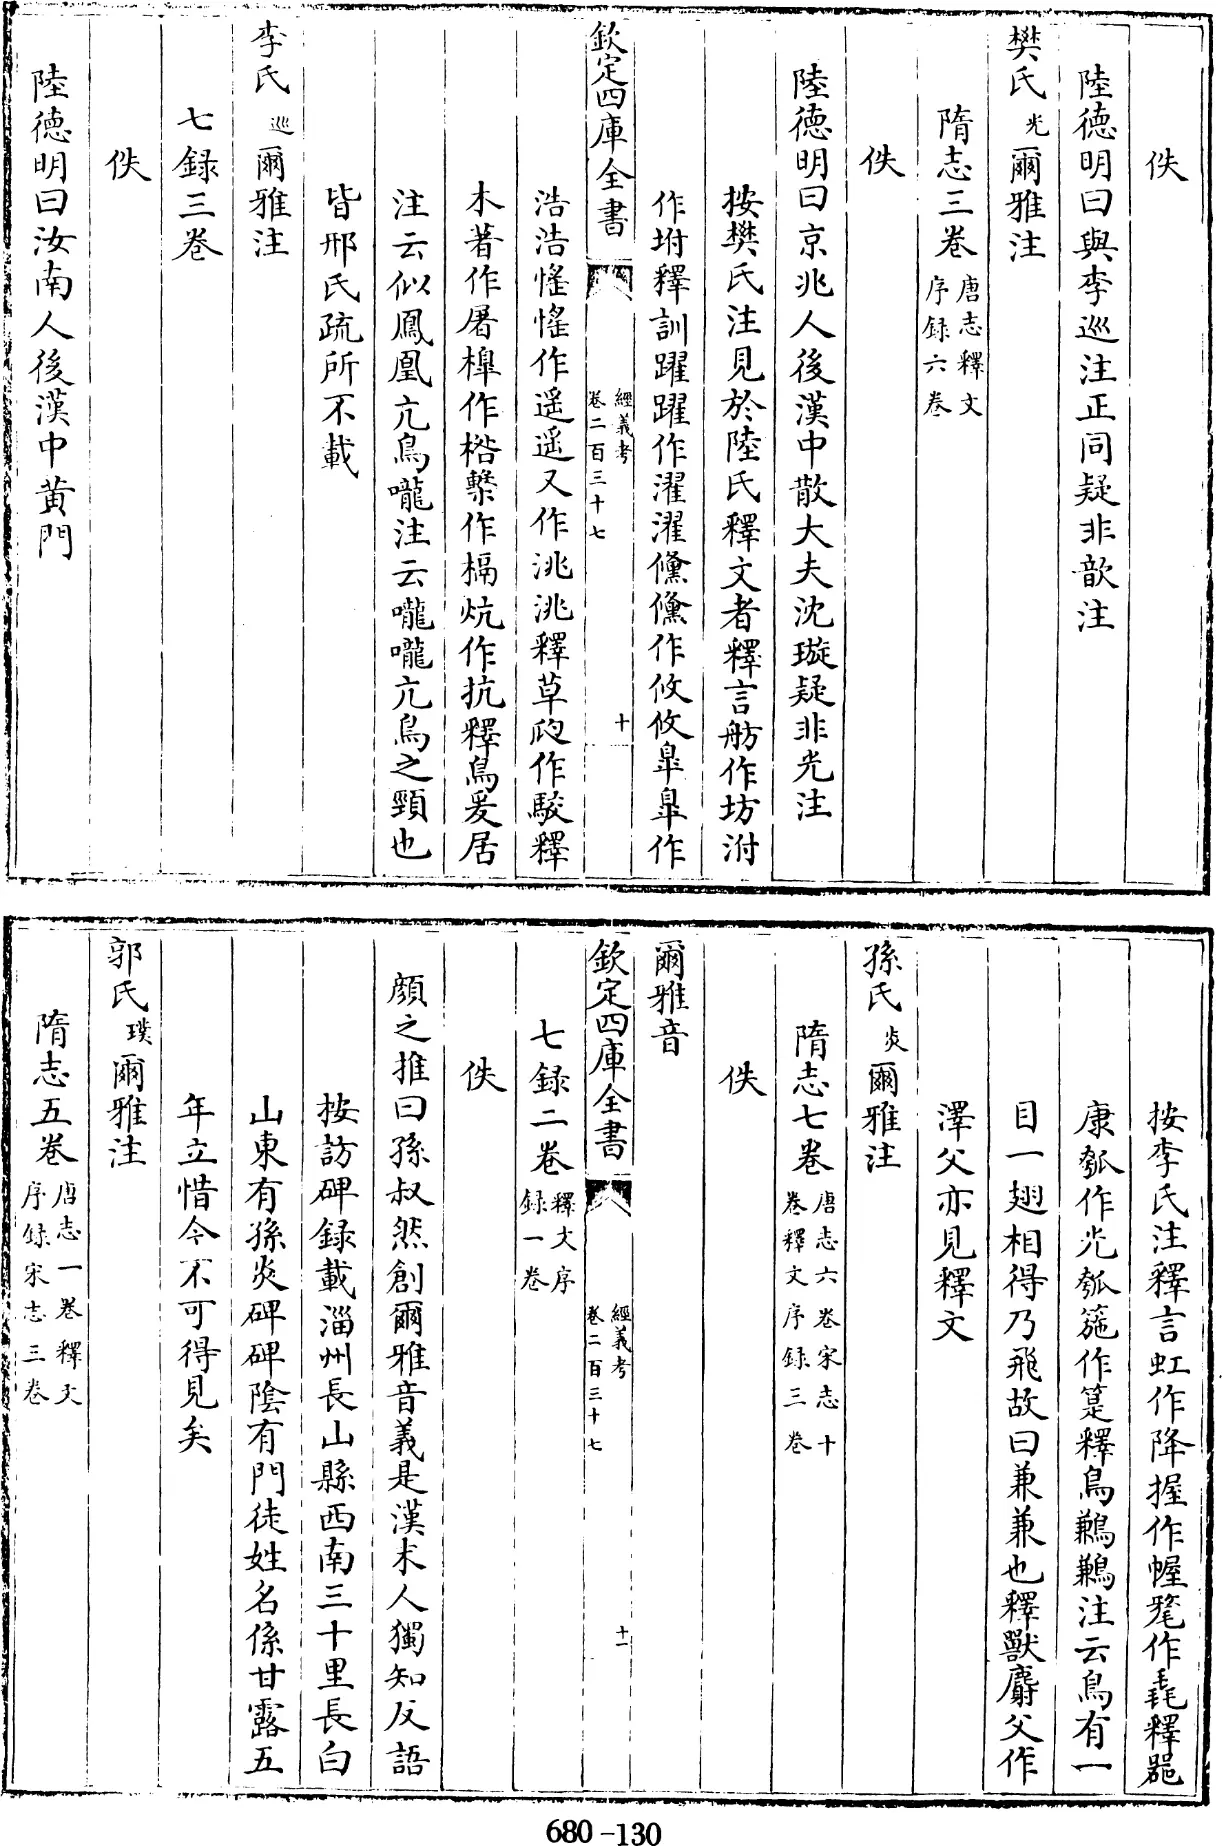 佚
陸德明曰與李巡注正同疑非歆注
樊氏光爾雅注
隋志三巻唐志釋文序録六巻
佚
陸德明曰京兆人後漢中散大夫沈璇疑非光注
按樊氏注見於陸氏釋文者釋言舫作坊泭
作坿釋訓躍躍作濯濯儵儵作攸攸臯臯作
欽定四庫全書
經義考
卷二百三十七
十
浩浩愮愮作遥遥又作洮洮釋草瓝作駮釋
木著作屠槹作楁檕作槅炕作抗釋鳥爰居
注云似鳳凰亢鳥嚨注云嚨嚨亢鳥之頸也
皆邢氏疏所不載
李氏巡爾雅注
七録三巻
佚
陸德明曰汝南人後漢中黄門
按李氏注釋言虹作降握作幄氂作毳釋器
康瓠作光瓠箷作箟釋鳥鶼鶼注云鳥有一
目一翅相得乃飛故曰兼兼也釋獸麝父作
澤父亦見釋文
孫氏炎爾雅注
隋志七巻唐志六巻宋志十巻釋文序録三巻
佚
爾雅音
欽定四庫全書
經義考
卷二百三十七
十一
七録二巻釋文序録一巻
佚
顔之推曰孫叔然創爾雅音義是漢末人獨知反語
按訪碑録載淄州長山縣西南三十里長白
山東有孫炎碑碑陰有門徒姓名係甘露五
年立惜今不可得見矣
郭氏璞爾雅注
隋志五巻唐志一巻釋文序録宋志三巻
680-130